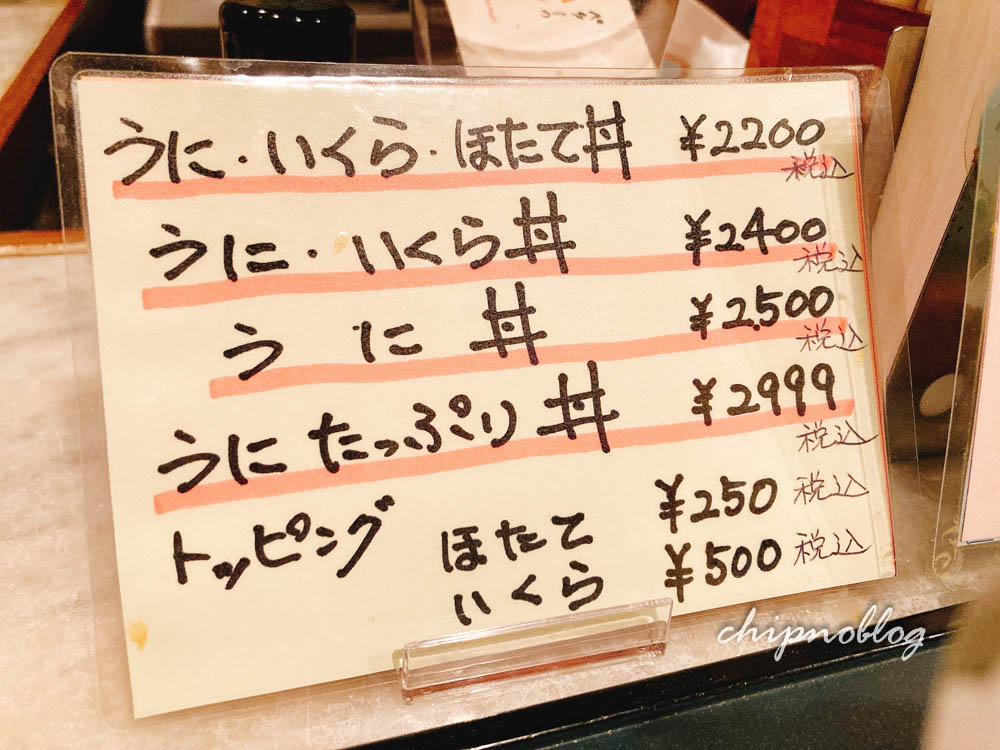 うに・いくら・ほたて丼 ¥2200 税込
うに・いくら丼 ¥2400 税込
うに丼 ¥2,500 税込
うにたっぷり丼 ¥2999 税込
トッピング ほたて ¥250 税込
いくら ¥500 税込
chipnoblog